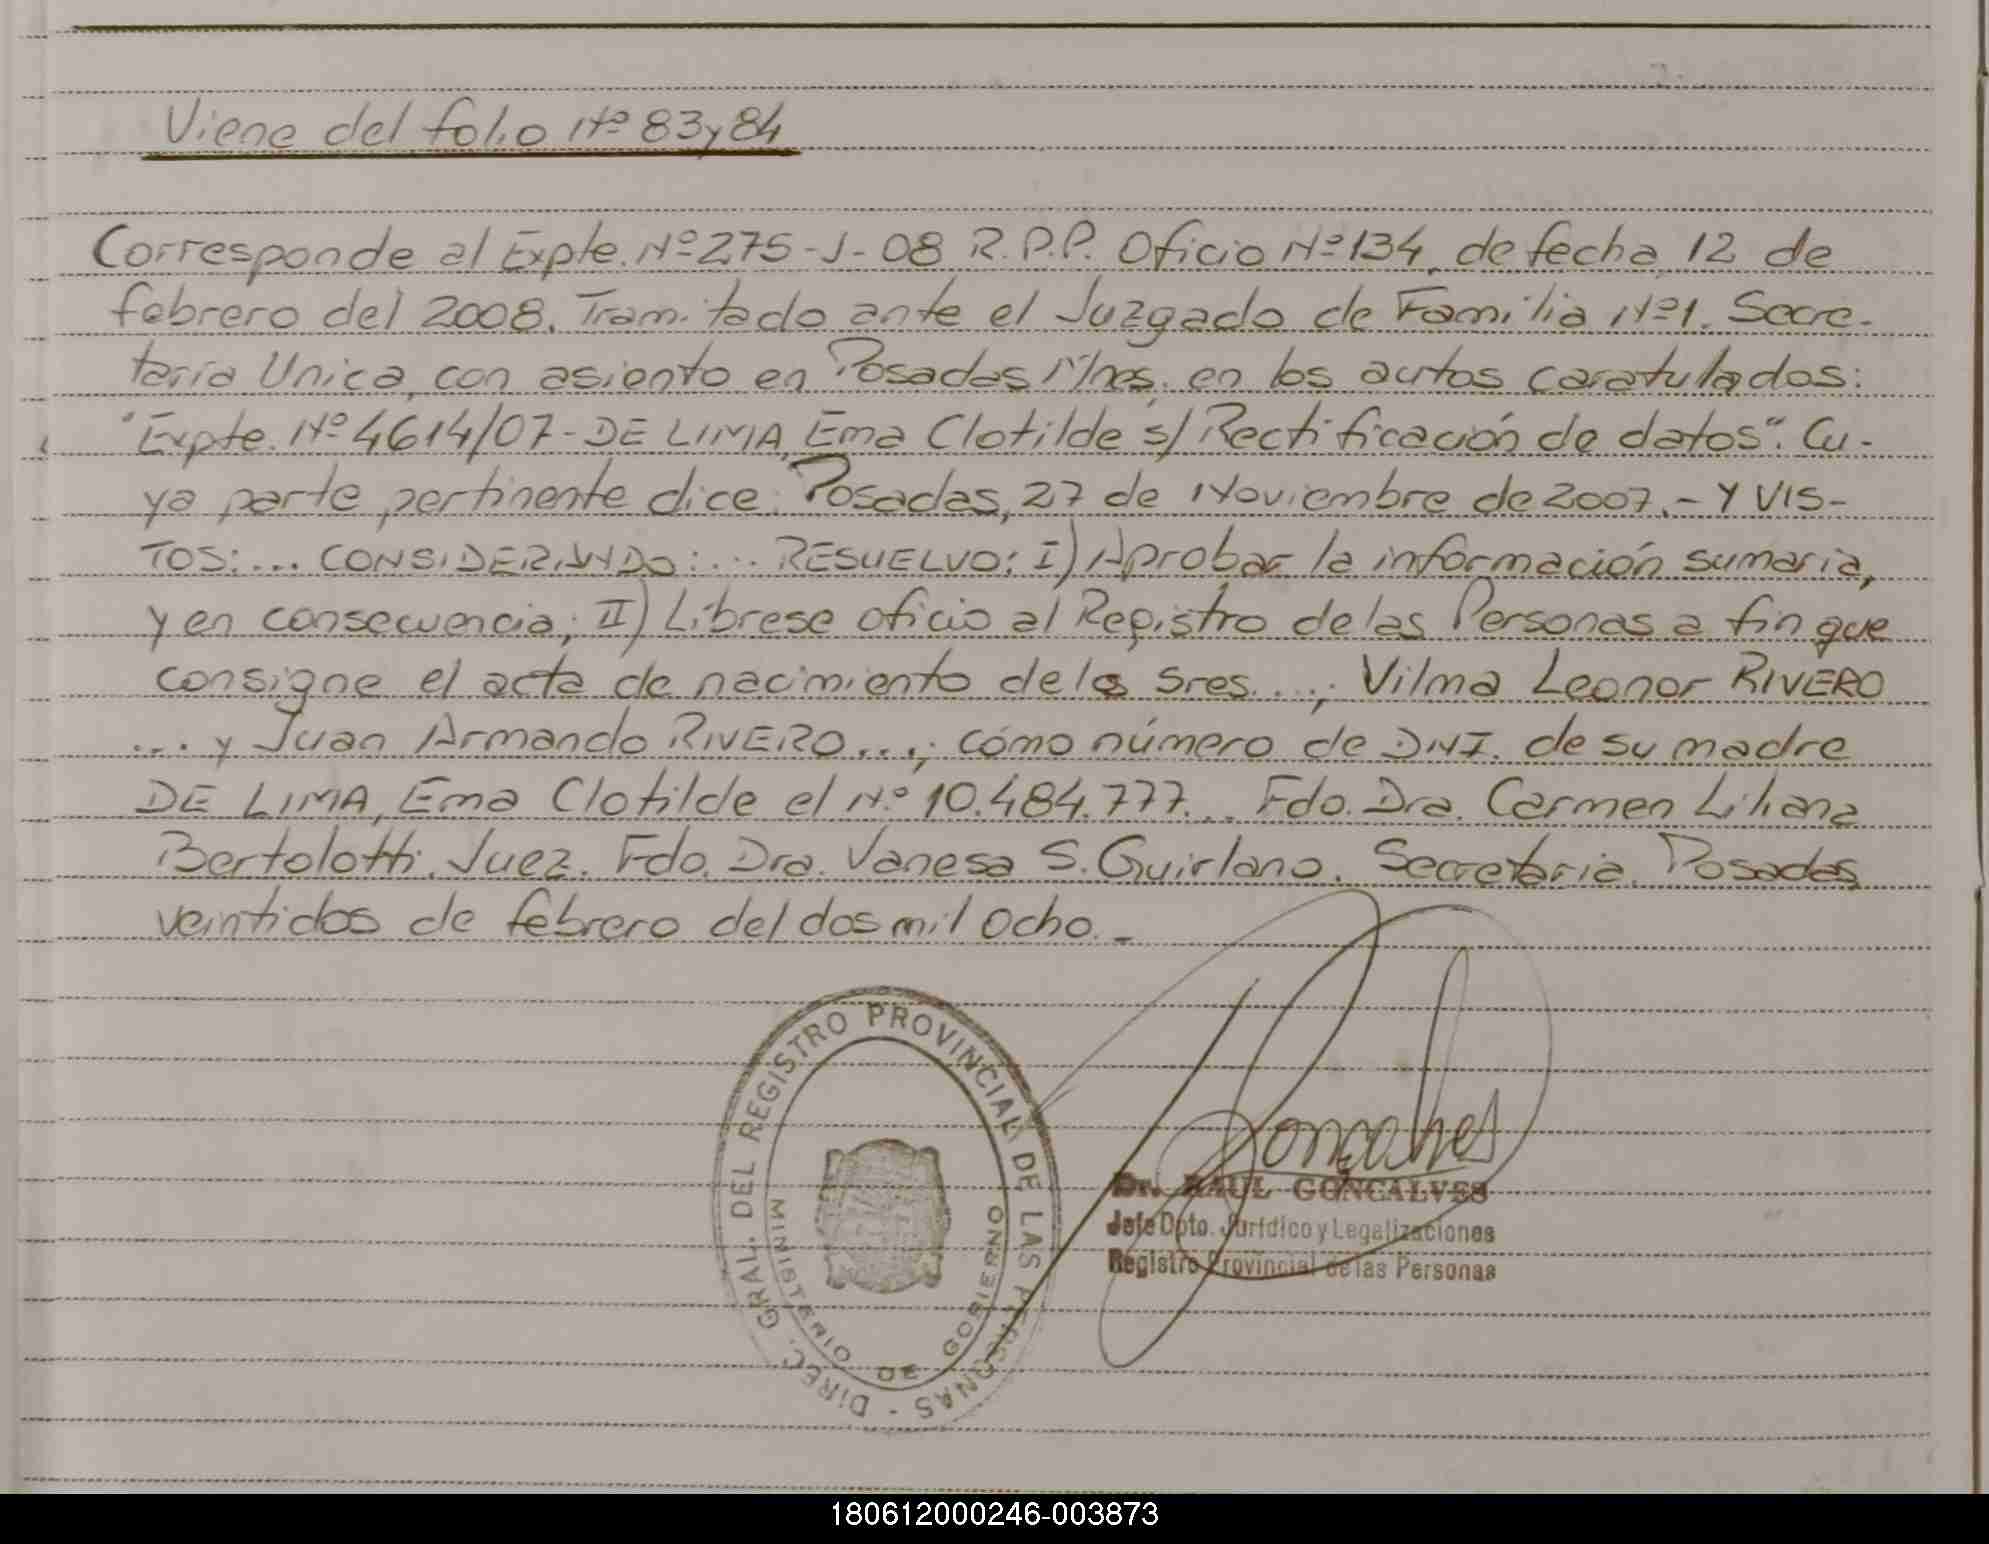 Viene del folio Nº 83 y 84
Corresponde al Expte. Nº 275-J-08 R.P.P. Oficio Nº 134, de fecha 12 de
febrero del 2008. Tramitado ante el Juzgado de Familia Nº 1. Secre-
taría Unica, con asiento en Posadas Mnes. en los autos caratulados:
"Expte. Nº 4614/07 - DE LIMA, Ema Clotilde s/ Rectificación de datos". Cu-
ya parte pertinente dice: Posadas, 27 de Noviembre de 2007.- Y VIS-
TOS:... CONSIDERANDO:... RESUELVO: I) Aprobar la información sumaria,
y en consecuencia; II) Líbrese oficio al Registro de las Personas a fin que
consigne el acta de nacimiento de los Sres....; Vilma Leonor RIVERO
.... y Juan Armando RIVERO...; cómo número de DNI. de su madre
DE LIMA, Ema Clotilde el Nº 10.484.777... Fdo. Dra. Carmen Liliana
Bertolotti. Juez. Fdo. Dra. Vanesa S. Guirlano. Secretaria. Posadas
veintidos de febrero del dos mil ocho.-
DIREC. GRAL. DEL REGISTRO PROVINCIAL DE LAS PERSONAS -
MINISTERIO DE GOBIERNO
Goncalves
Dr. RAUL GONCALVES
Jefe Dpto. Jurídico y Legalizaciones
Registro Provincial de las Personas
180612000246-003873